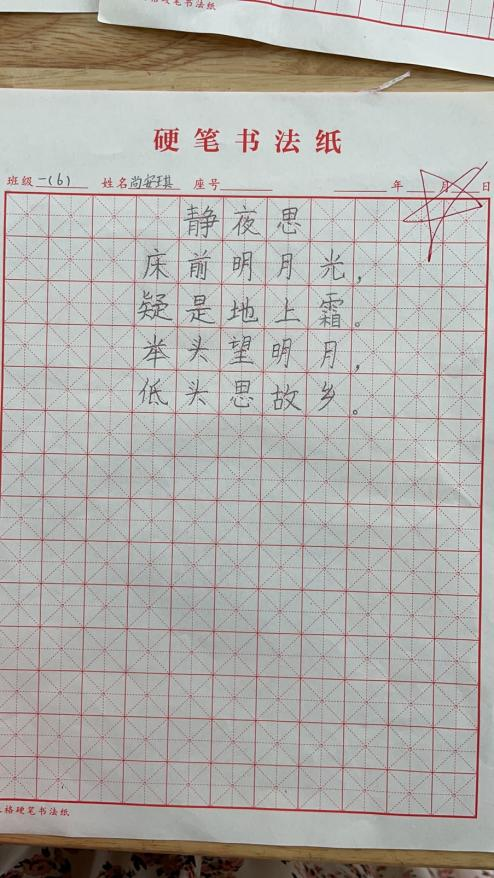 格硬笔书法纸
硬笔书法纸
班级 一(6) 姓名 尚安琪 座号 年 月 日
静夜思
床前明月光，
疑是地上霜。
举头望明月，
低头思故乡。
格硬笔书法纸